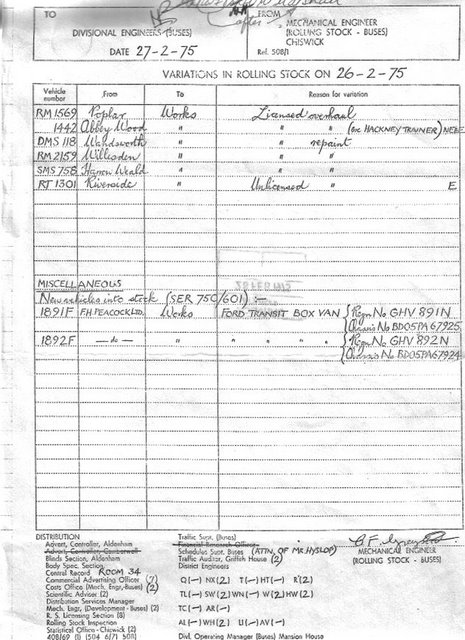 TO
FROM
DIVISIONAL ENGINEERS (BUSES)
MECHANICAL ENGINEER
(ROLLING STOCK - BUSES)
CHISWICK
DATE 27-2-75
Ref. 508/1
VARIATIONS IN ROLLING STOCK ON 26-2-75
Vehicle number From To Reason for variation
RM 1569 Poplar Works Licensed overhaul
1442 Abbey Wood " " " (ex HACKNEY TRAINER)
DMS 118 Wandsworth " " repaint
RM 2159 Willesden " " "
SMS 758 Harrow Weald " " "
RT 1301 Riverside " Unlicensed " E
MISCELLANEOUS
New vehicles into stock (SER 750/601) :-
1891F F.H. PEACOCK LTD. Works FORD TRANSIT BOX VAN { Regn No GHV 891N
Chassis No BD05PA67925
1892F -do- " " " " " { Regn No GHV 892N
Chassis No BD05PA67924
DISTRIBUTION
Advert. Controller, Aldenham
Advert. Controller, Camberwell
Blinds Section, Aldenham
Body Spec. Section
Central Record ROOM 34
Commercial Advertising Officer (7)
Costs Office (Mech. Engr.-Buses) (2)
Scientific Adviser (2)
Distribution Services Manager
Mech. Engr. (Development - Buses) (2)
R. S. Licensing Section (8)
Rolling Stock Inspection
Statistical Office - Chiswick (2)
408/69 (1) (504 6/7) 508/1
Traffic Supt. (Buses)
Financial Research Office
Schedules Supt. Buses (ATTN. OF MR. HYSLOP)
Traffic Auditor, Griffith House (2)
District Engineers
Q (-) NX (2) T (-) HT (-) R (2)
TL (-) SW (2) WN (-) W (2) HW (2)
TC (-) AR (-)
AL (-) WH (2) U (-) AV (-)
Divl. Operating Manager (Buses) Mansion House
MECHANICAL ENGINEER
(ROLLING STOCK - BUSES)